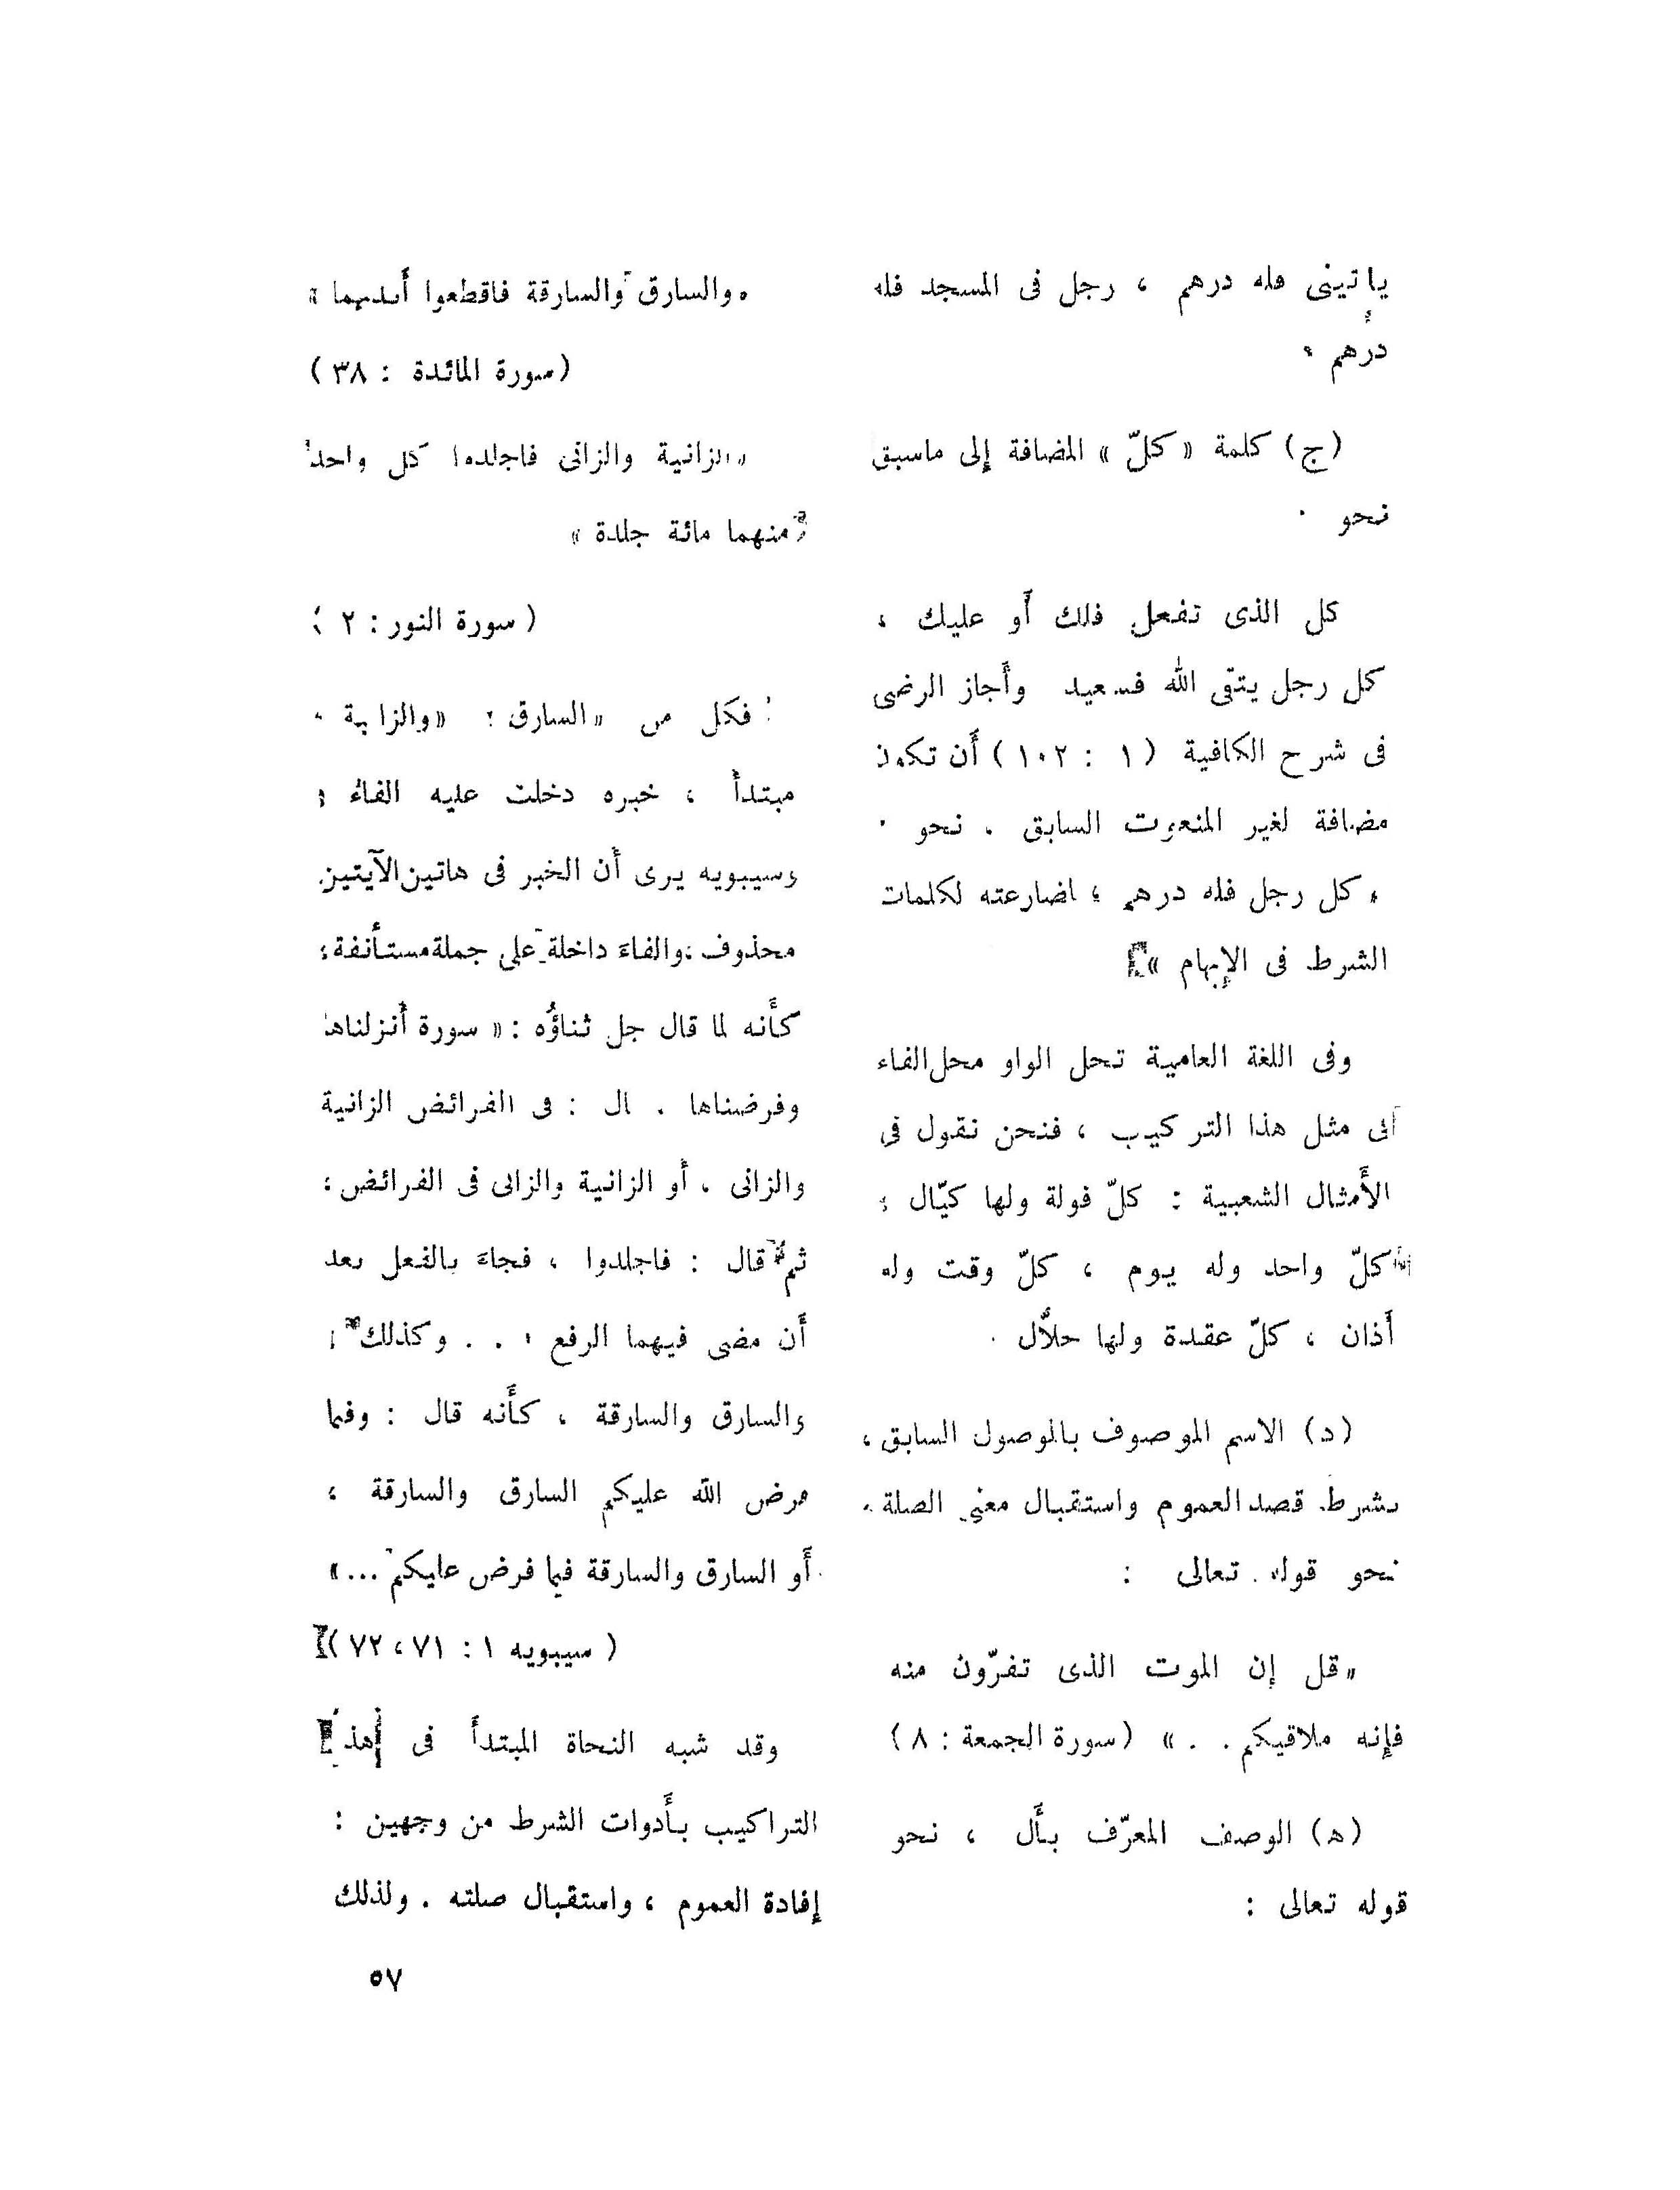 ياتينى فله درهم ، رجل فى المسجد فله
درهم .
(ج) كلمة « كلّ » المضافة إلى ماسبق
نحو .
كل الذى تفعل فلك أو عليك ،
كل رجل يتقى الله فسعيد وأجاز الرضى
فى شرح الكافية ( ١ : ١٠٢ ) أن تكون
مضافة لغير المنعوت السابق . نحو .
« كل رجل فله درهم ؛ لمضارعته لكلمات
الشرط فى الإبهام »
وفى اللغة العامية تحل الواو محل الفاء
فى مثل هذا التركيب ، فنحن نقول فى
الأمثال الشعبية : كلّ فولة ولها كيّال ؛
كلّ واحد وله يوم ، كلّ وقت وله
أذان ، كلّ عقدة ولها حلّال .
(د) الاسم الموصوف بالموصول السابق ،
بشرط قصد العموم واستقبال معنى الصلة .
نحو قوله تعالى :
« قل إن الموت الذى تفرّون منه
فإنه ملاقيكم . . » (سورة الجمعة : ٨)
(ه) الوصف المعرّف بأل ، نحو
قوله تعالى :
« والسارق والسارقة فاقطعوا أيديهما »
(سورة المائدة : ٣٨)
« الزانية والزانى فاجلدوا كل واحد
منهما مائة جلدة »
( سورة النور : ٢ )
فكل من « السارق » « والزانية »
مبتدأ ، خبره دخلت عليه الفاء ؛
وسيبويه يرى أن الخبر فى هاتين الآيتين
محذوف ؛ والفاء داخلة على جملة مستأنفة ؛
كأنه لما قال جل ثناؤه : « سورة أنزلناها
وفرضناها . قال : فى الفرائض الزانية
والزانى ، أو الزانية والزانى فى الفرائض ؛
ثم قال : فاجلدوا ، فجاء بالفعل بعد
أن مضى فيهما الرفع ، . . وكذلك :
والسارق والسارقة ، كأنه قال : وفيما
فرض الله عليكم السارق والسارقة ؛
أو السارق والسارقة فيما فرض عليكم ... »
( سيبويه ١ : ٧١ ، ٧٢ )
وقد شبه النحاة المبتدأ فى هذه
التراكيب بأدوات الشرط من وجهين :
إفادة العموم ، واستقبال صلته . ولذلك
٥٧